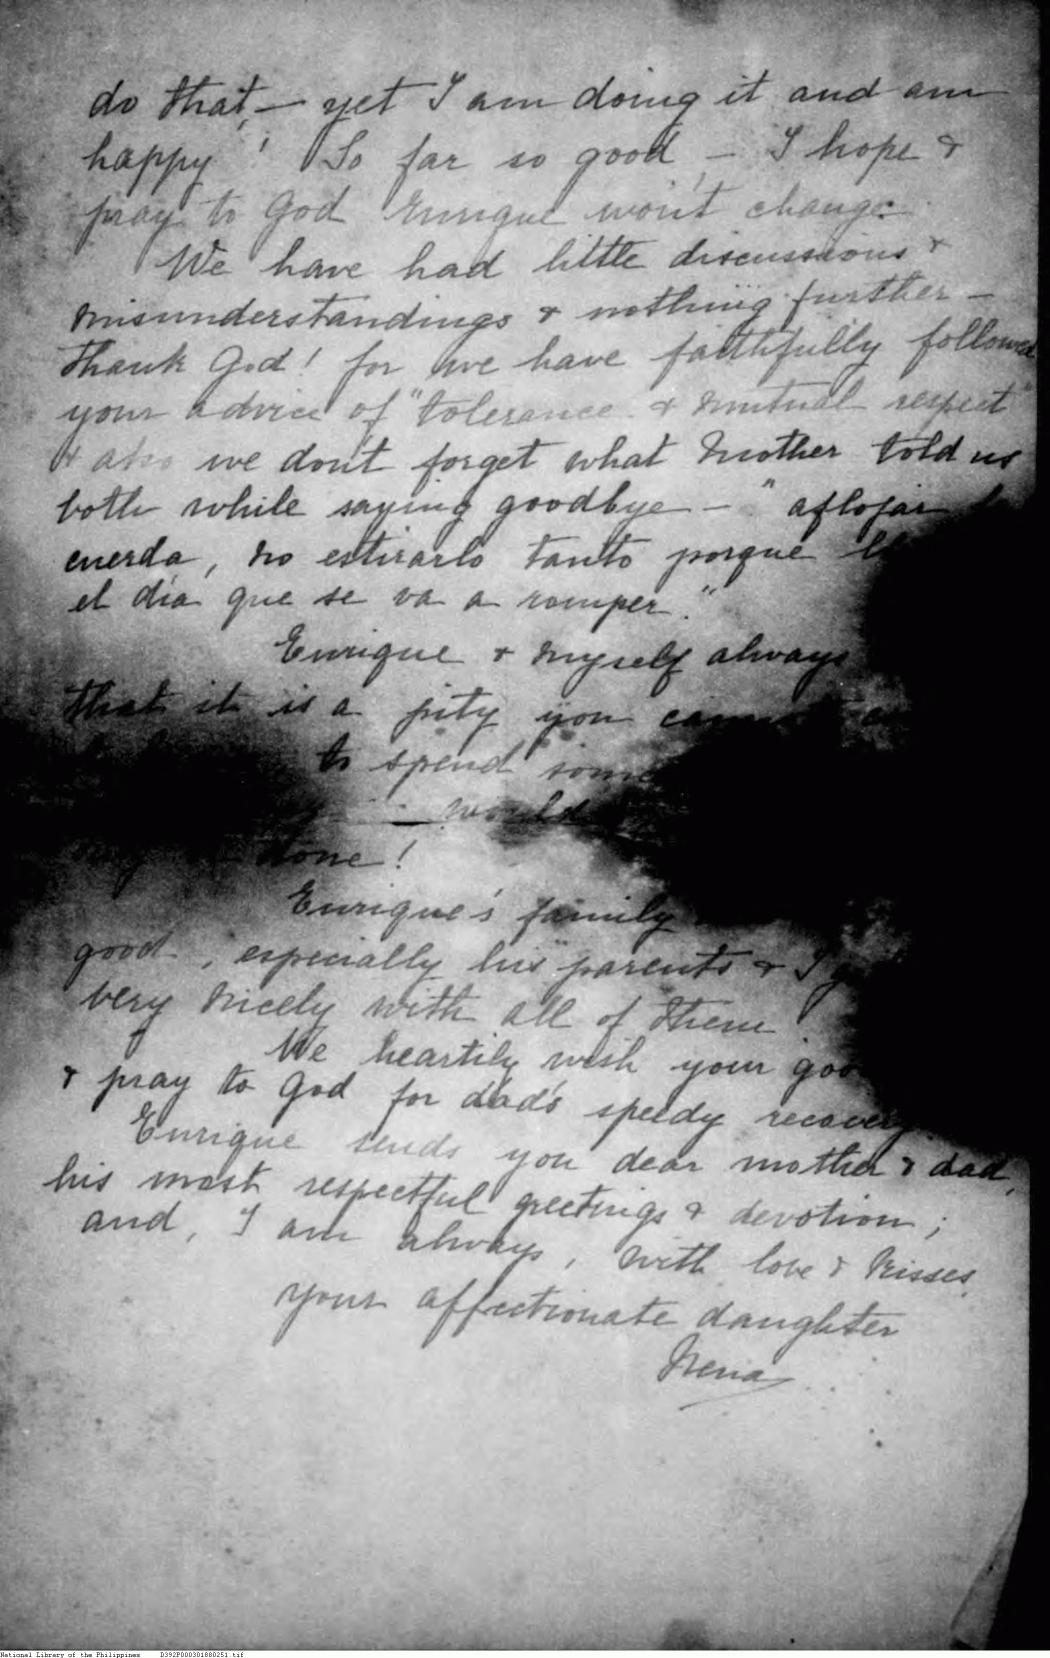 do that, — yet I am doing it and am
happy! So far so good, — I hope &
pray to God Enrique won't change.
We have had little discussions &
misunderstandings & nothing further —
thank God! for we have faithfully followed
your advice of "tolerance & mutual respect"
& also we don't forget what Mother told us
both while saying goodbye — "aflojar
cuerda, no estirarlo tanto porque
el día que se va a romper."
Enrique & myself always
that it is a pity you cannot
to spend some
would
done!
Enrique's family
good, especially his parents & I
very nicely with all of them
We heartily wish your
& pray to God for dad's speedy recovery.
Enrique sends you dear mother & dad,
his most respectful greetings & devotion;
and, I am always, with love & kisses,
your affectionate daughter
Nena
National Library of the Philippines D392P000301880251.tif